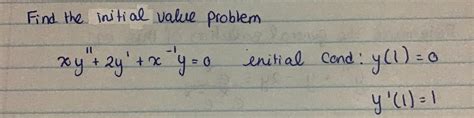 Find the initial value problem
xy'' + 2y' + x⁻¹y = 0 enitial Cond : y(1) = 0
y'(1) = 1